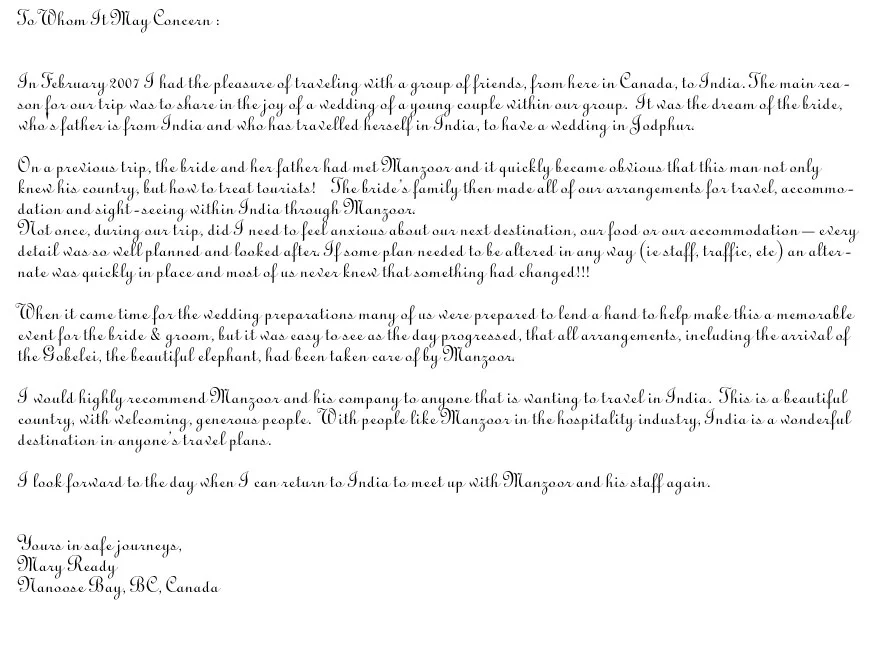 To Whom It May Concern :
In February 2007 I had the pleasure of traveling with a group of friends, from here in Canada, to India. The main rea -
son for our trip was to share in the joy of a wedding of a young couple within our group. It was the dream of the bride,
who's father is from India and who has travelled herself in India, to have a wedding in Jodphur.
On a previous trip, the bride and her father had met Manzoor and it quickly became obvious that this man not only
knew his country, but how to treat tourists! The bride's family then made all of our arrangements for travel, accommo -
dation and sight -seeing within India through Manzoor.
Not once, during our trip, did I need to feel anxious about our next destination, our food or our accommodation — every
detail was so well planned and looked after. If some plan needed to be altered in any way (ie staff, traffic, etc) an alter -
nate was quickly in place and most of us never knew that something had changed!!!
When it came time for the wedding preparations many of us were prepared to lend a hand to help make this a memorable
event for the bride & groom, but it was easy to see as the day progressed, that all arrangements, including the arrival of
the Gobelei, the beautiful elephant, had been taken care of by Manzoor.
I would highly recommend Manzoor and his company to anyone that is wanting to travel in India. This is a beautiful
country, with welcoming, generous people. With people like Manzoor in the hospitality industry, India is a wonderful
destination in anyone's travel plans.
I look forward to the day when I can return to India to meet up with Manzoor and his staff again.
Yours in safe journeys,
Mary Ready
Nanoose Bay, BC, Canada